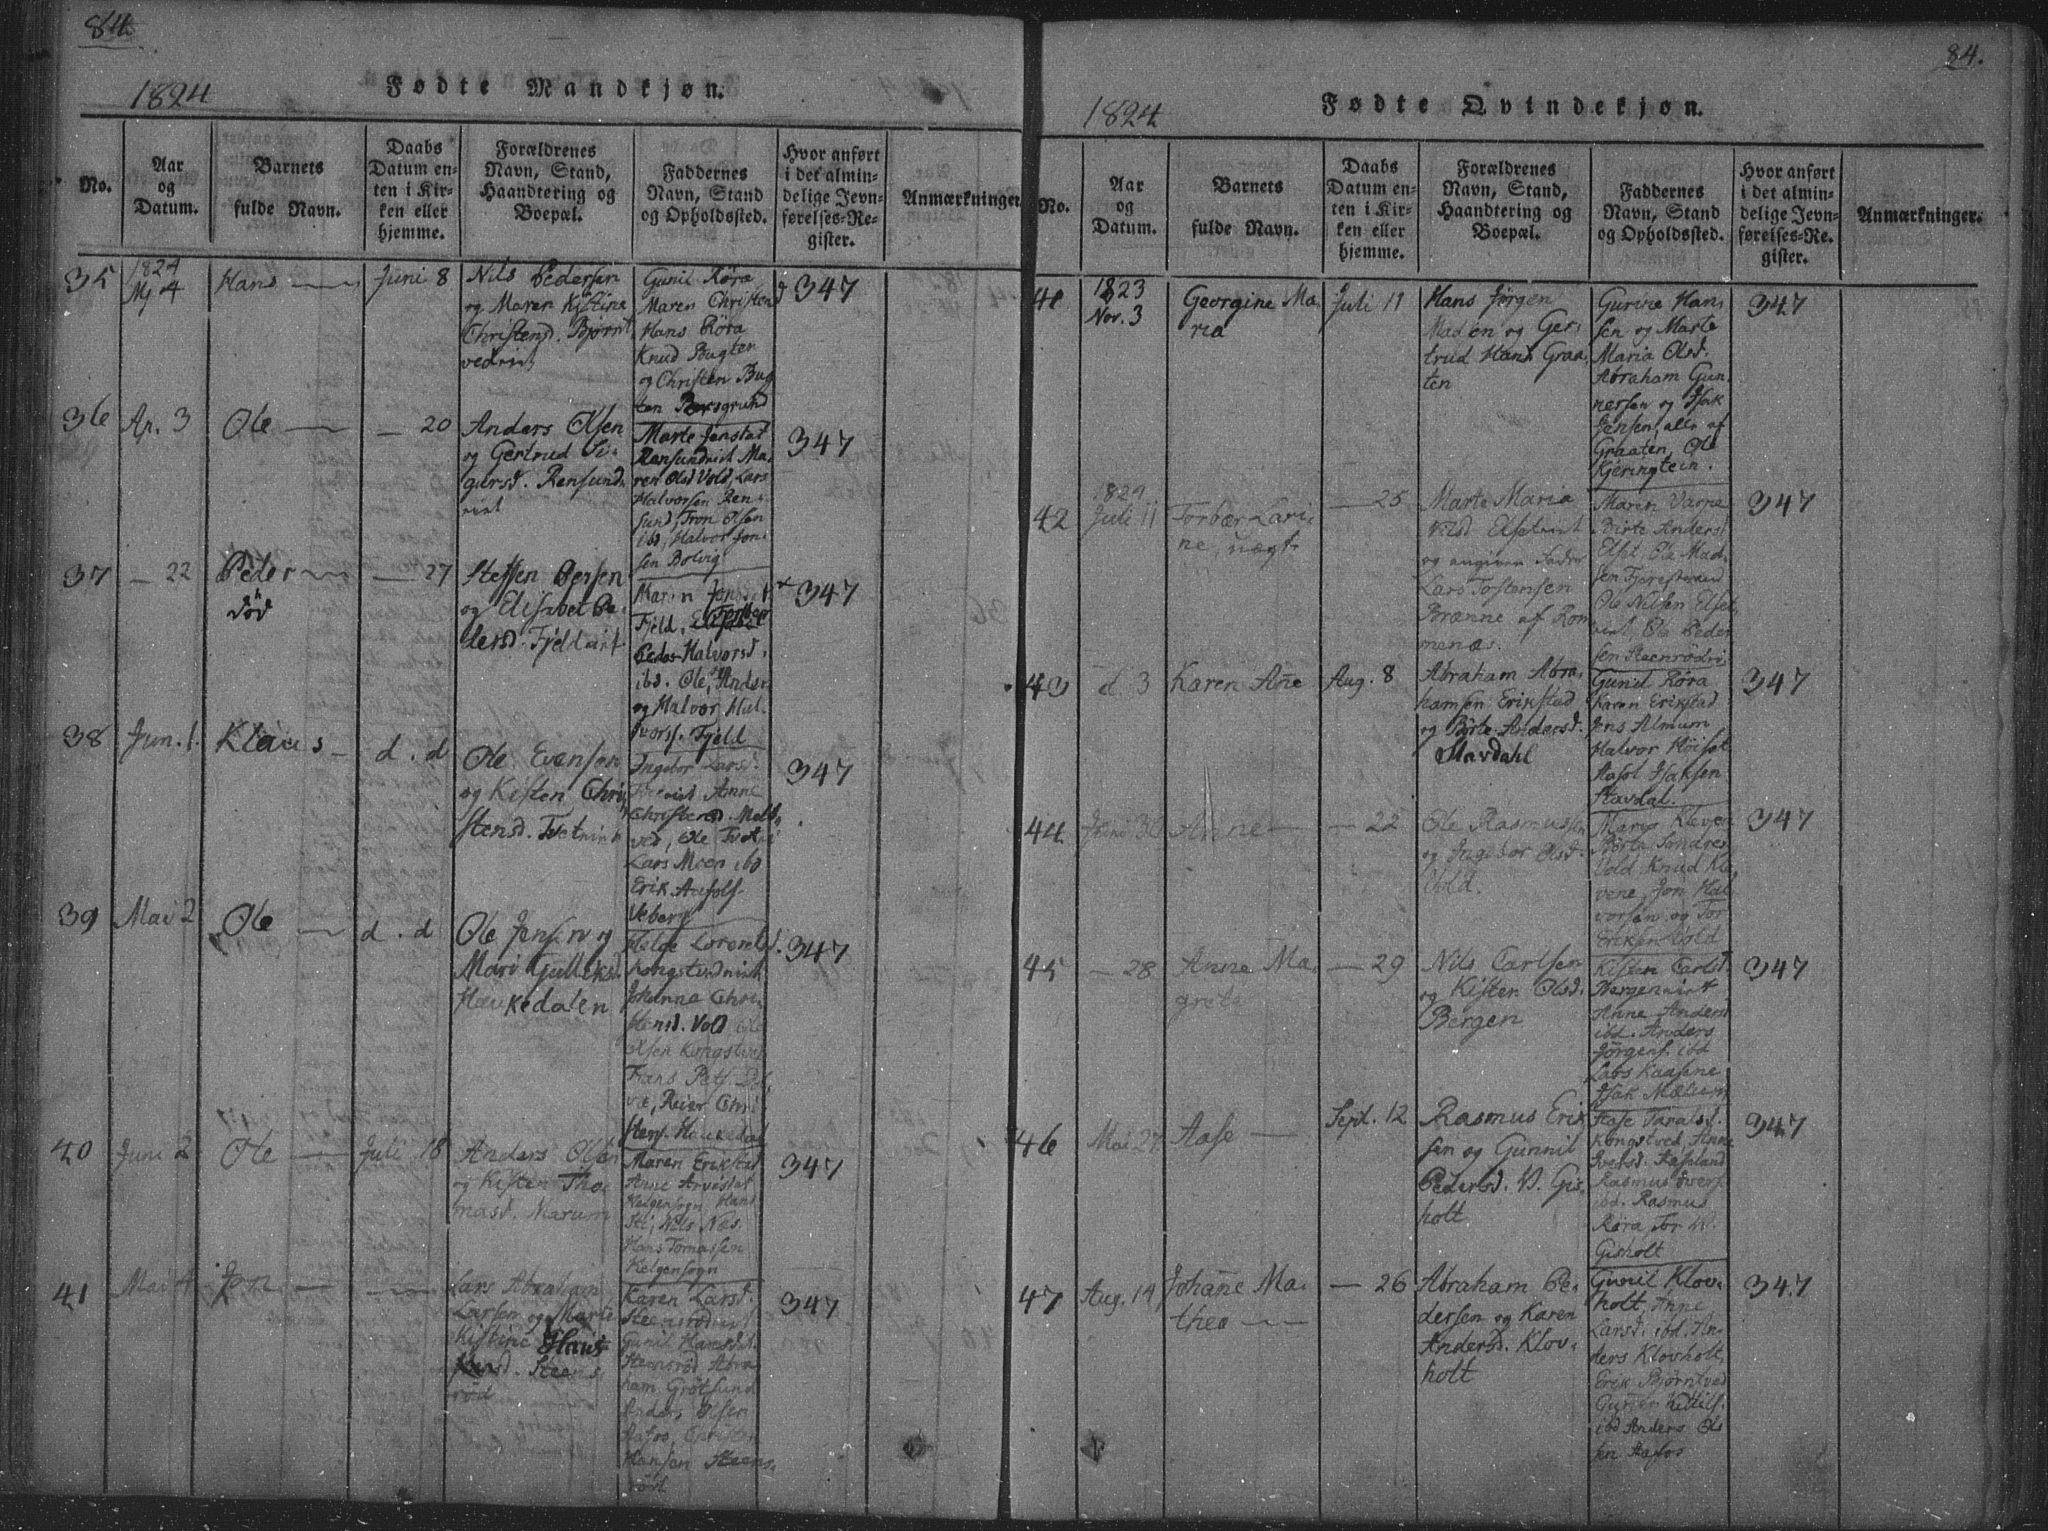 84.
1824
Fødte Mandkjøn.
No.
Aar
og
Datum.
Barnets
fulde Navn.
Daabs
Datum en-
ten i Kir-
ken eller
hjemme.
Forældrenes
Navn, Stand,
Haandtering og
Boepæl.
Faddernes
Navn, Stand
og Opholdssted.
Hvor anført
i det almin-
delige Jevn-
førelses-Re-
gister.
Anmærkninger.
35
1824
Mj 4
Hans
Juni 8
Nils Pedersen
og Maren Kistine
Christensd. Bjørnt
vedeie
Gunil Røra
Maren Christensd
Hans Røra
Knud Bugten
og Christen Bug
ten Porsgrund
347
36
Ap. 3
Ole
— 20
Anders Olsen
og Gertrud Si-
gursd. Rensund
eiet
Marte Jensdat
Rensundeiet Ma-
ren Olsd Vold, Lars
Halvorsen Ren-
sund, Tron Olsen
ibd, Halvor Jon-
sen Bolvig
347
37
— 22
Peder
død
— 27
Steffen Persen
og Elisabet Pe-
dersd. Fjeldeiet
Maren Jonsd
Fjeld,
Halvorsd.
ibd. Ole, Anders
og Halvor Hal-
vorss. Fjeld
347
38
Jun. 1.
Klaus
d. d
Ole Evensen
og Kisten Chri
stensd. Tveteiet
Ingebor Larsd.
Anne
Christensd. Melt-
ved, Ole Tvet
Lars Moen ibd
Erik Aasolfs
Veberg
347
39
Mai 2
Ole
d. d
Ole Jensen og
Mari Gulleksd.
Haukedalen
Helge Lorentsd.
Kongstvedeiet
Johanna Chri-
stensd. Vold Ole
Olsen Kongstved
Frans Pets.
Reier Chri
stens. Haukedal
347
40
Juni 2
Ole
Juli 18
Anders Olsen
og Kisten Tho
masd. Marum
Maren Erikstad
Anne
Helgensogn Hans
Sti, Nils Næs
Hans Tomassen
Helgensogn
347
41
Mai 4
Jon
Lars Abraham
Larsen og Marte
Kistine Hans
d. Steens-
rød
Karen Larsd.
Steensrødeiet
Gunil Hansdat
Steensrød Abra
ham Grøtsund
Anders Olsen
Aafos, Christen
Hansen Steens-
rød
347
84.
1824
Fødte Qvindekjøn.
No.
Aar
og
Datum.
Barnets
fulde Navn.
Daabs
Datum en-
ten i Kir-
ken eller
hjemme.
Forældrenes
Navn, Stand,
Haandtering og
Boepæl.
Faddernes
Navn, Stand
og Opholdssted.
Hvor anført
i det almin-
delige Jevn-
førelses-Re-
gister.
Anmærkninger.
41
1823
Nov. 3
Georgine Ma-
ria
Juli 11
Hans Jørgen
Madsen og Ger-
trud Hansd Graa-
ten
Gurine Han-
sen og Marte
Maria Olsd.
Abraham Gun-
nersen og Isak
Jensen, alle af
Graaten, Ole
Kjeringtein.
347
42
1824
Juli 11
Torbør Lavi-
ne, uægt.
— 25
Marte Maria
Nilsd Elseteiet
og angiven Fader
Lars Torstensen
Brænne af Rom
menæs.
Maren
Birte Andersd
Elset, Ole Mad-
sen Fjærestrand
Ole Nilsen Elset
eiet, Ole Peder
sen Steenrødeie
347
43
d. 3
Karen Añe
Aug. 8
Abraham Abra-
hamsen Erikstad
og Birte Andersd.
Stavdahl
Gunil Røra
Karen Erikstad
Jens Almum
Halvor Høiset
Aasol Isaksen
Stavdal.
347
44
Juni 30
Anne
— 22
Ole Rasmussen
og Ingebor Olsd.
Vold.
Maria Kleven
Birte
Vold Knud Kle-
vene, Jon Hal-
vorsen og Tor
Eriksen Vold
347
45
— 28
Anne Ma-
grete
— 29
Nils Carlsen
og Kisten Olsd.
Bergen
Kisten Carlsd.
Bergeneiet
Anne Andersd
ibd. Anders
Jørgens. ibd
Lars Kaasene
Isak
347
46
Mai 27
Aase
Sept. 12
Rasmus Erik
sen og Gunnil
Pedersd. V. Gis-
holt
Aase Taralsd.
Kongstved, Anne
Iversd. Aasland
Rasmus Ivers.
ibd. Rasmus
Røra, Tor V.
Gisholt
347
47
Aug. 14
Johañe Ma-
thea
— 26
Abraham Pe-
dersen og Karen
Andersd. Klov-
holt
Gunil Klov-
holt, Anne
Larsd. ibd. An-
ders Klovholt,
Erik Bjørntved
Guñer Kittils.
ibd Anders Ol-
sen Aafos
347